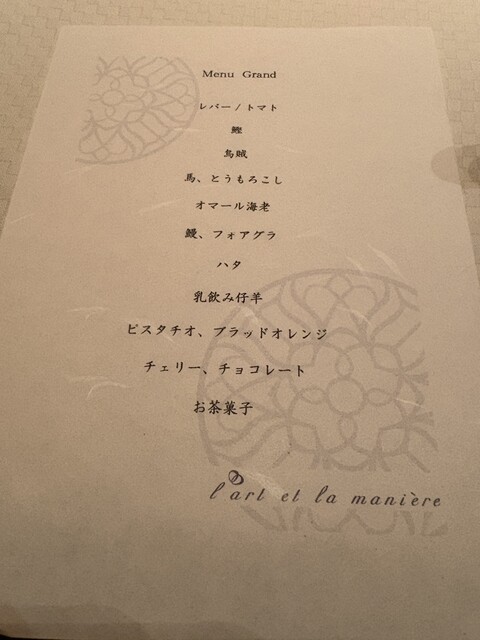 Menu Grand
レバー/トマト
鰹
烏賊
馬、とうもろこし
オマール海老
鰻、フォアグラ
ハタ
乳飲み仔羊
ピスタチオ、ブラッドオレンジ
チェリー、チョコレート
お茶菓子
l'art et la manière